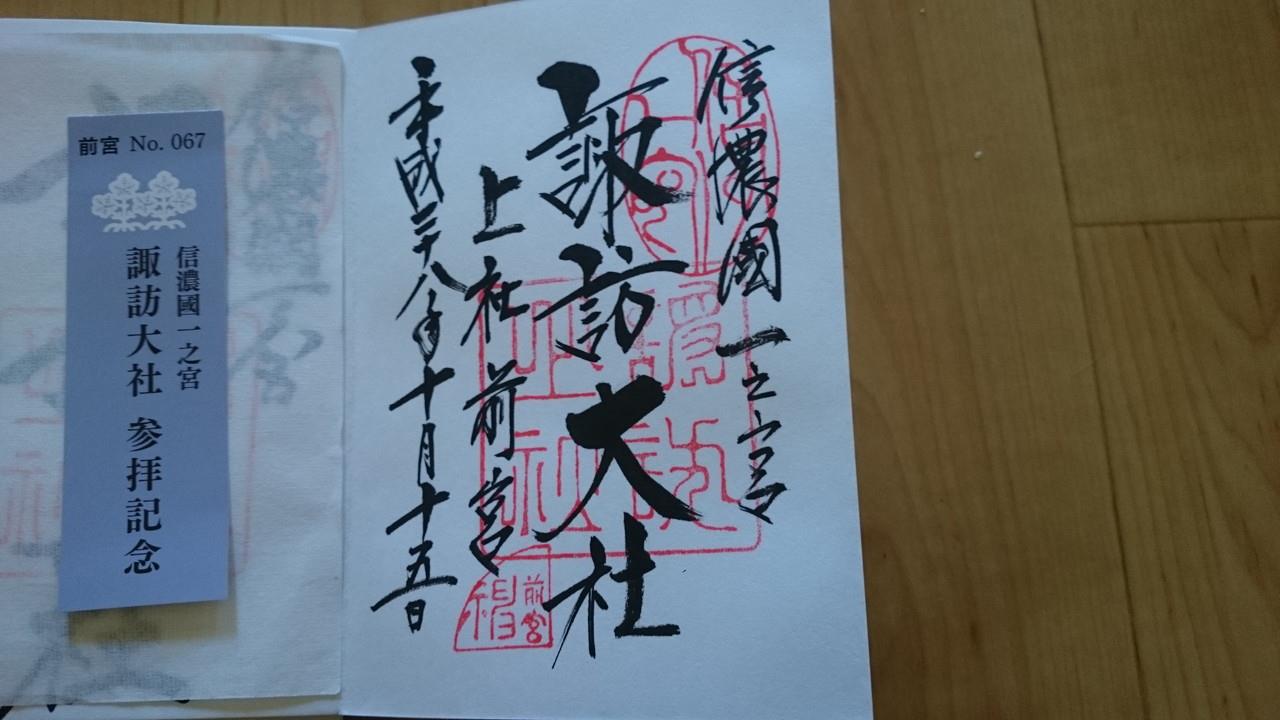 信濃國一之宮
諏訪大社
上社前宮
平成二十八年十月十五日
前宮
前宮 No. 067
信濃國一之宮
諏訪大社 参拝記念